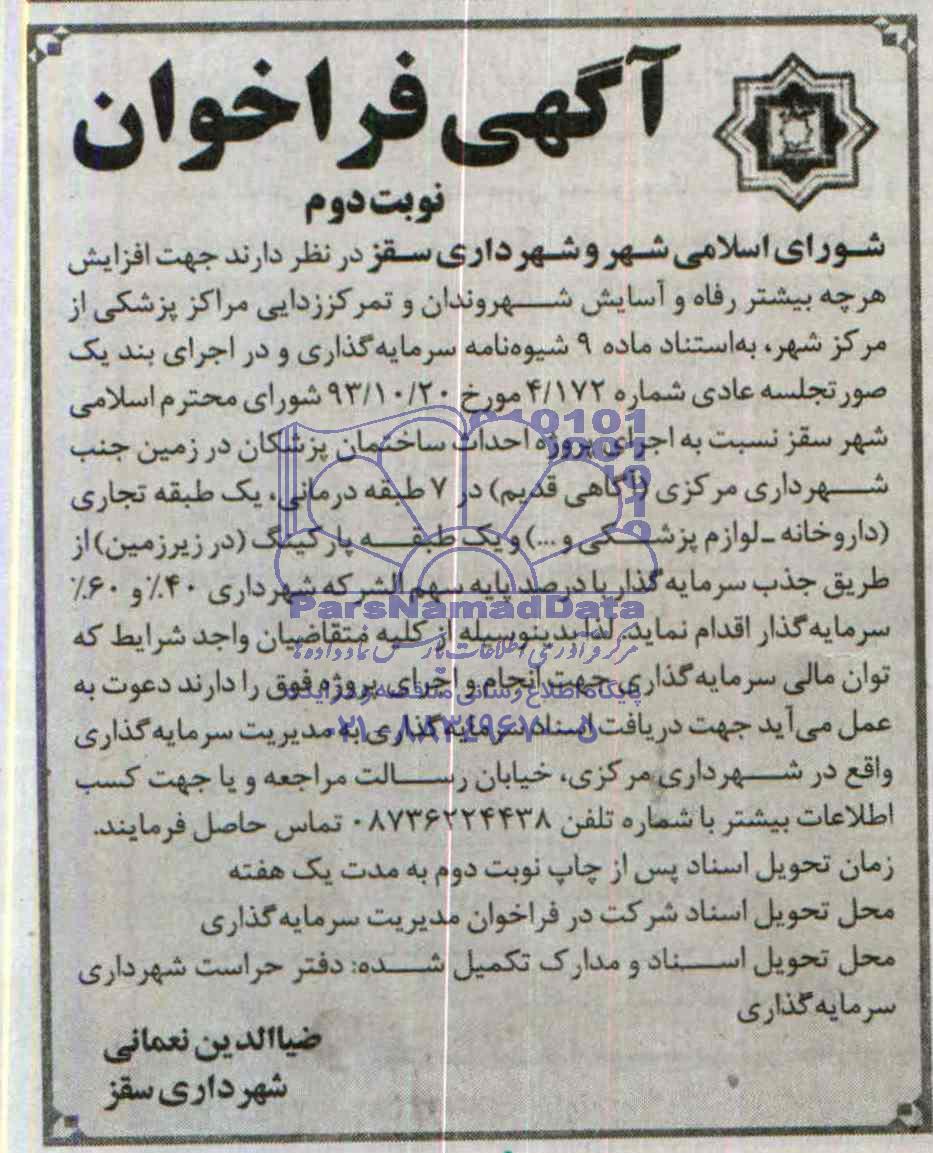 آگهی فراخوان
نوبت دوم
شورای اسلامی شهر و شهرداری سقز در نظر دارند جهت افزایش
هرچه بیشتر رفاه و آسایش شهروندان و تمرکززدایی مراکز پزشکی از
مرکز شهر، به‌استناد ماده ۹ شیوه‌نامه سرمایه‌گذاری و در اجرای بند یک
صورتجلسه عادی شماره ۴/۱۷۲ مورخ ۹۳/۱۰/۲۰ شورای محترم اسلامی
شهر سقز نسبت به اجرای پروژه احداث ساختمان پزشکان در زمین جنب
شهرداری مرکزی (آگاهی قدیم) در ۷ طبقه درمانی، یک طبقه تجاری
(داروخانه ـ لوازم پزشکی و ...) و یک طبقه پارکینگ (در زیرزمین) از
طریق جذب سرمایه‌گذار با درصد پایه سهم الشرکه شهرداری ۴۰٪ و ۶۰٪
ParsNamadData
سرمایه‌گذار اقدام نماید. لذا بدینوسیله از کلیه متقاضیان واجد شرایط که
مرکز فرآوری اطلاعات پارس نماد داده‌ها
توان مالی سرمایه‌گذاری جهت انجام و اجرای پروژه فوق را دارند دعوت به
پایگاه اطلاع رسانی مناقصه و مزایده
عمل می‌آید جهت دریافت اسناد سرمایه‌گذاری به مدیریت سرمایه‌گذاری
۰۲۱-۸۸۳۴۹۶۷۰-۵
واقع در شهرداری مرکزی، خیابان رسالت مراجعه و یا جهت کسب
اطلاعات بیشتر با شماره تلفن ۰۸۷۳۶۲۲۴۴۳۸ تماس حاصل فرمایند.
زمان تحویل اسناد پس از چاپ نوبت دوم به مدت یک هفته
محل تحویل اسناد شرکت در فراخوان مدیریت سرمایه‌گذاری
محل تحویل اسناد و مدارک تکمیل شده: دفتر حراست شهرداری
سرمایه‌گذاری
ضیاالدین نعمانی
شهرداری سقز